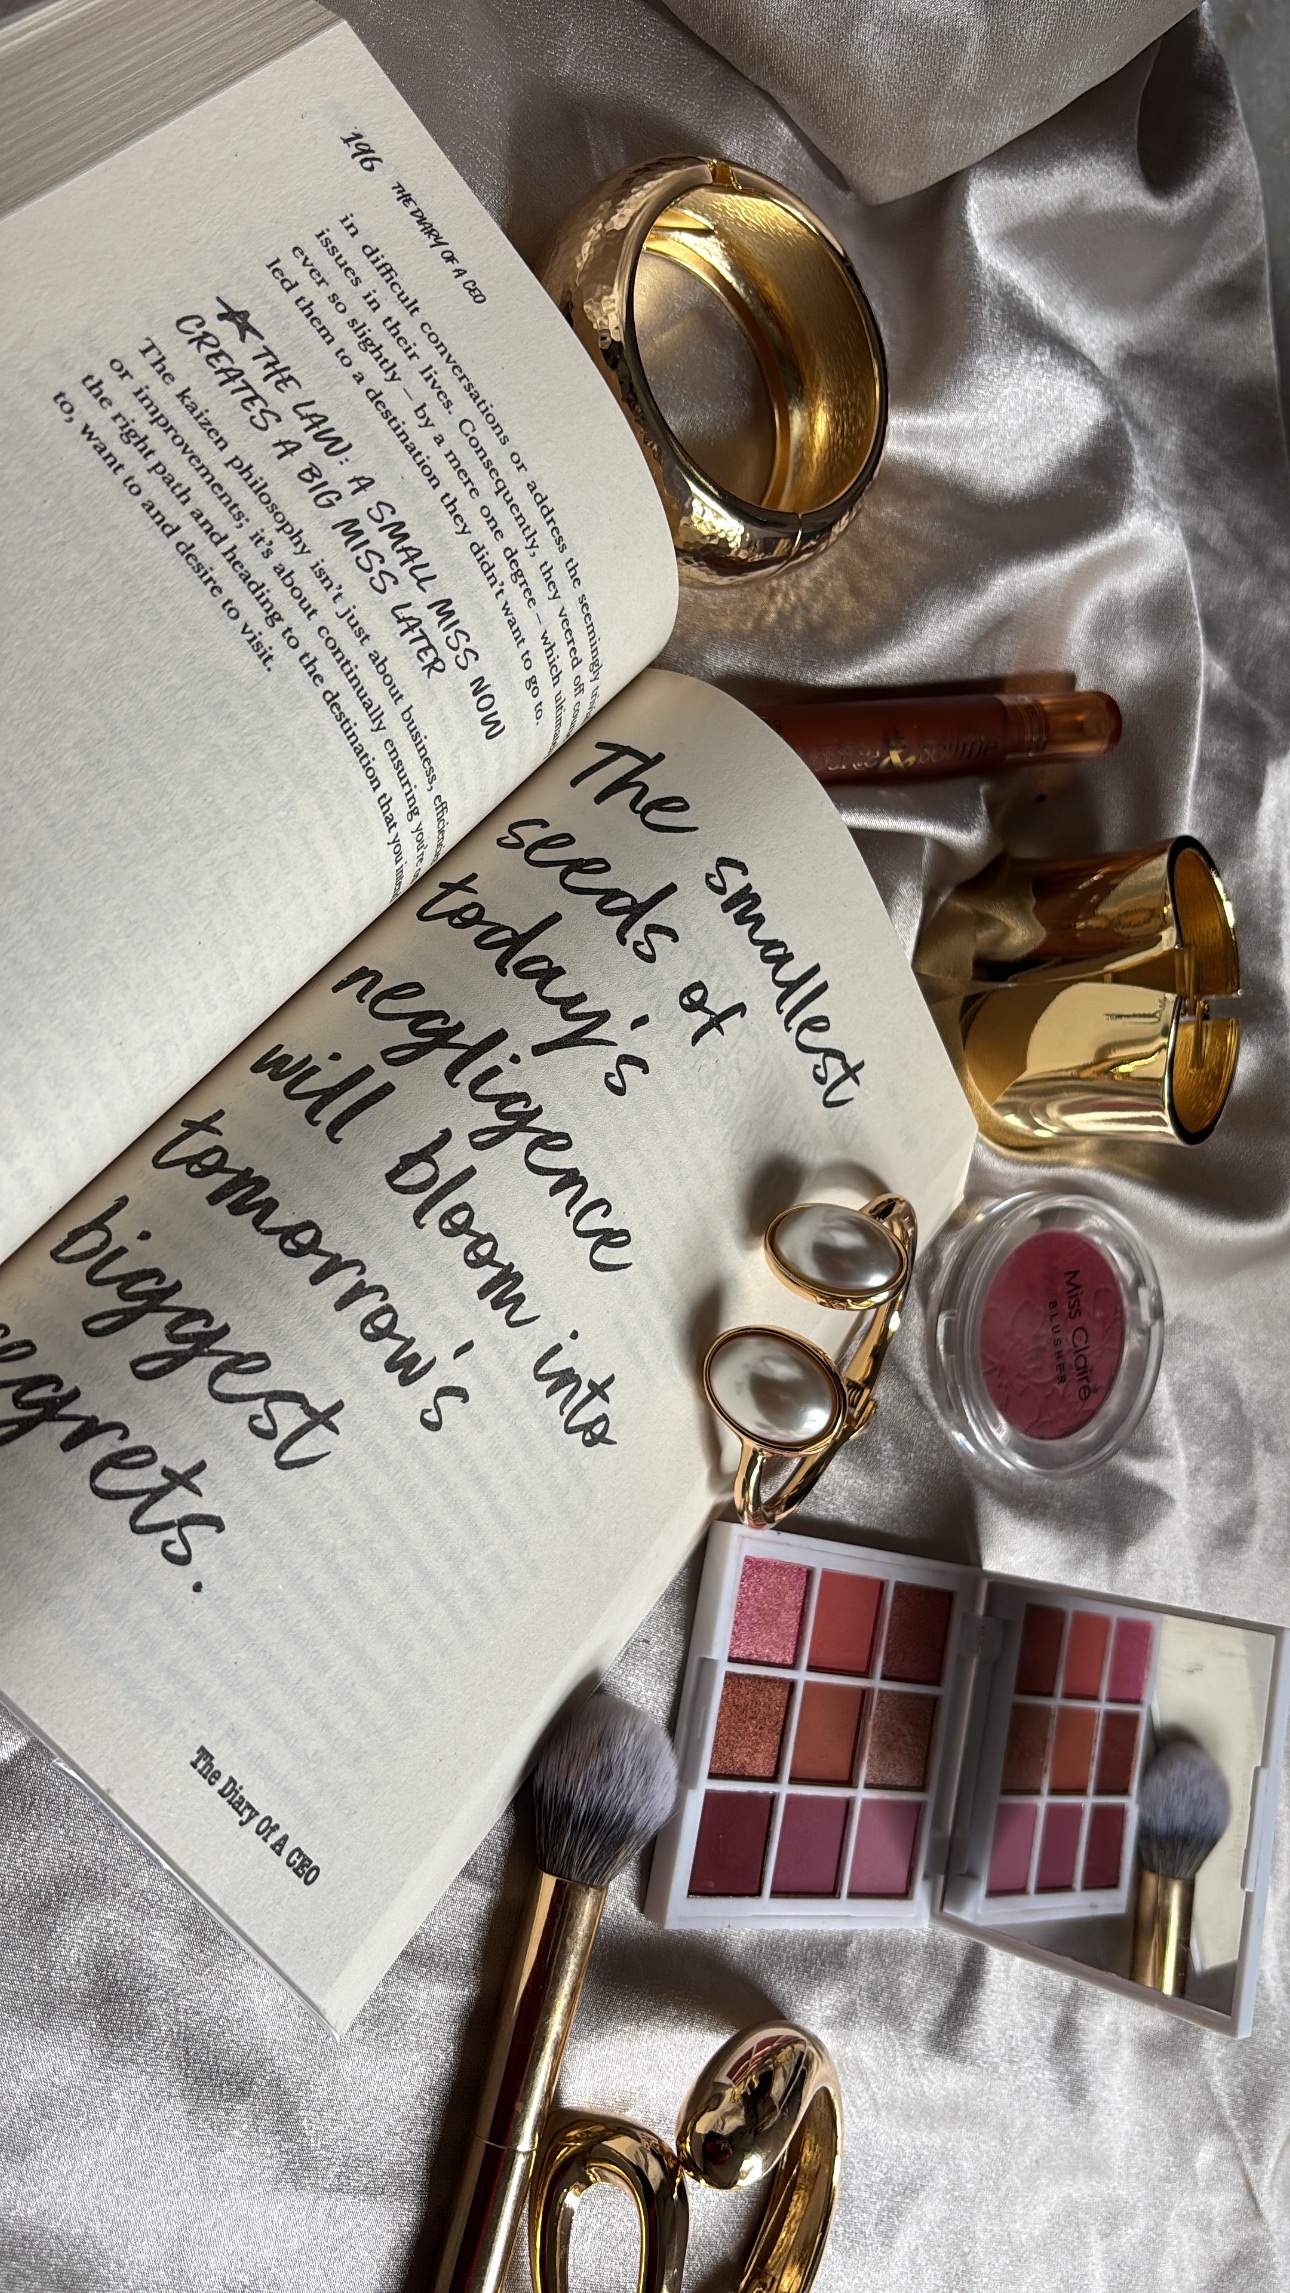 196 THE DIARY OF A CEO
in difficult conversations or address the seemingly
issues in their lives. Consequently, they veered off
ever so slightly – by a mere one degree – which
led them to a destination they didn't want to go to.
THE LAW: A SMALL MISS NOW
CREATES A BIG MISS LATER
The kaizen philosophy isn't just about business,
or improvements; it's about continually ensuring you're
the right path and heading to the destination that you
to, want to and desire to visit.
The smallest
seeds of
today's
negligence
will bloom into
tomorrow's
biggest
regrets.
The Diary Of A CEO
Miss Claire
BLUSHER